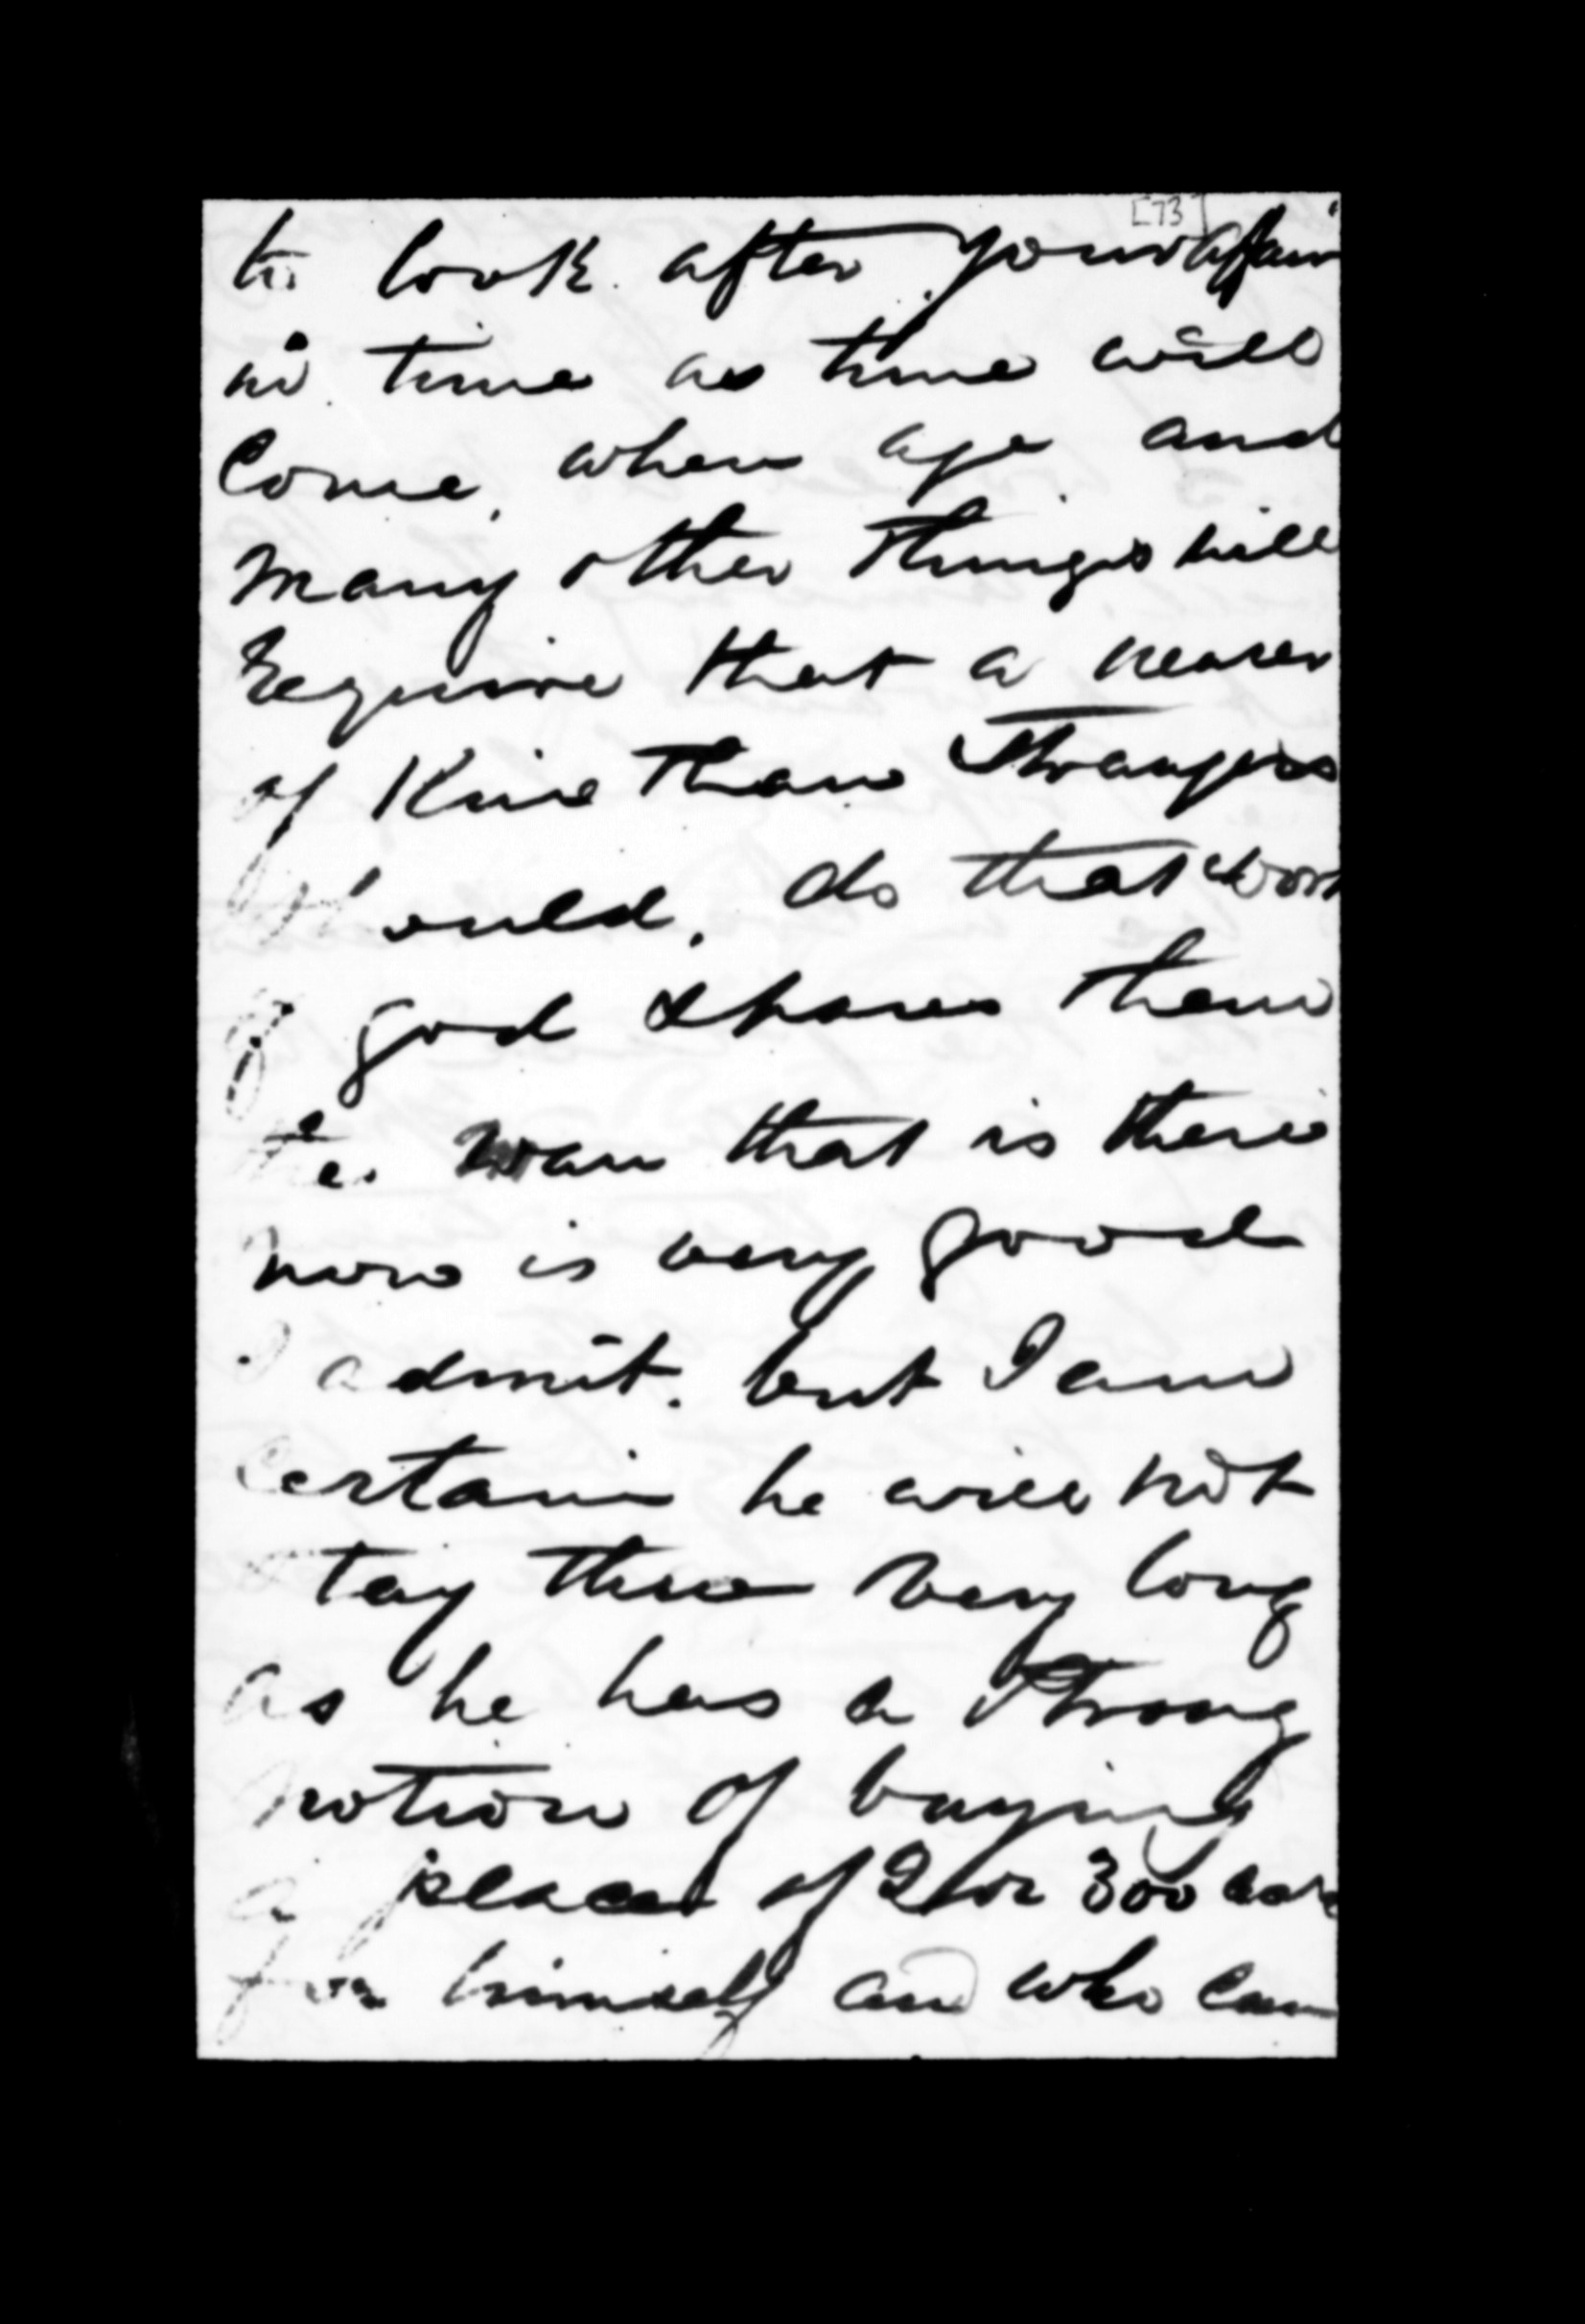 [73]
to look after your affair
in time as time will
Come, when age and
many other things will
Require that a nearer
of Kin than Strangers
should. do that work
if god spares them
the man that is there
now is very good
I admit. but I am
Certain he will not
stay there very long
as he has a Strong
notion of buying
a place of 2 or 300 acre
for himself and who can